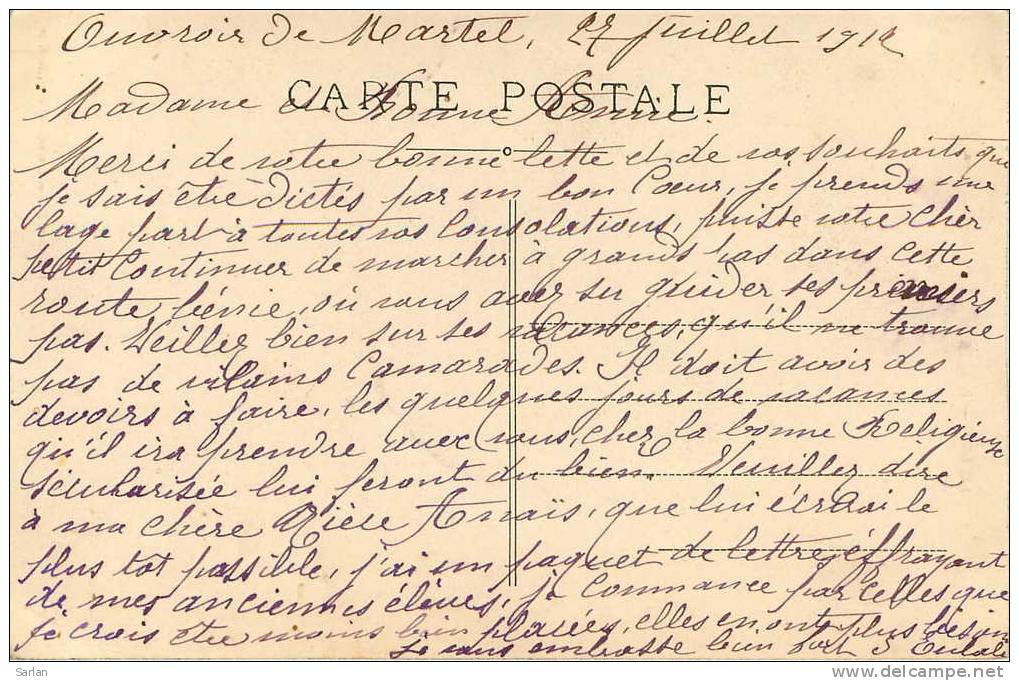 Ouvroir de Martel, 27 Juillet 1912
CARTE POSTALE
Madame et Bonne Amie.
Merci de votre bonne lette et de vos souhaits que
je sais être dictés par un bon Coeur, je prends une
large part à toutes vos Consolations, puisse votre Cher
petit Continuer de marcher à grands pas dans cette
route bénie, où vous avez su guider ses premiers
pas. Veillez bien sur ses vacances, qu'il ne trouve
pas de vilains Camarades. Il doit avoir des
devoirs à faire, les quelques jours de vacances
qu'il ira prendre avec vous, chez la bonne Religieuse
sécularisée lui feront du bien. Veuillez dire
à ma chère Anaïs, que lui écrirai le
plus tot possible, j'ai un paquet de lettres effrayant
de mes anciennes élèves, je Commance par celles que
je crois être moins bien placées, elles en ont plus besoin
Je vous embrasse bien fort S Eulalie
Sarlan
www.delcampe.net